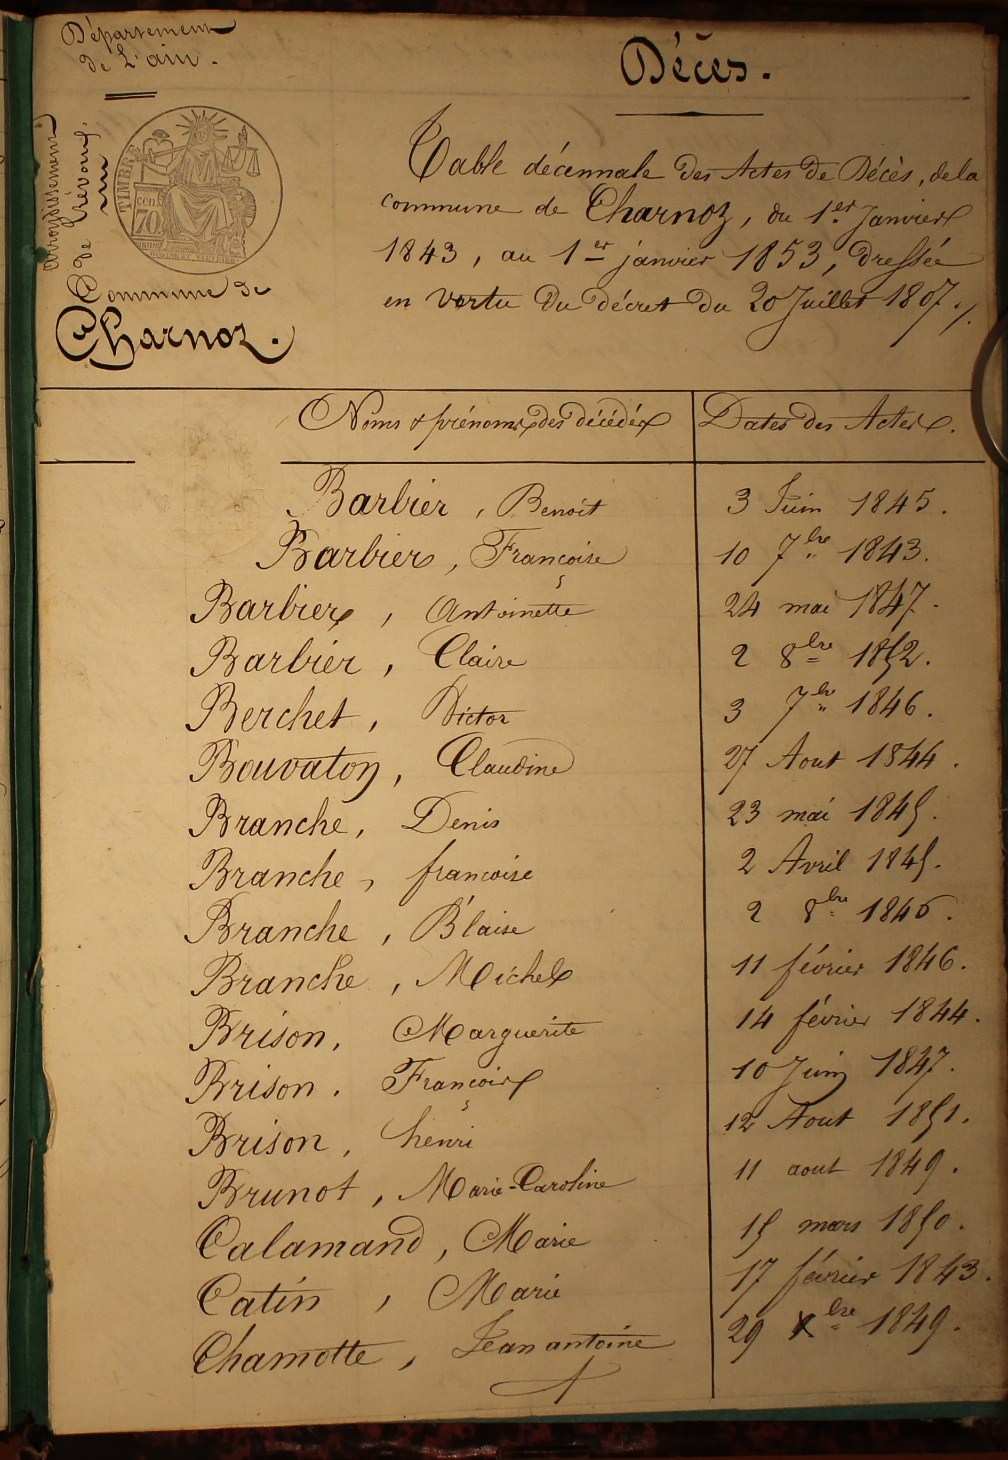 Département
de L'ain.
arrondissement
de Trévoux.
TIMBRE
70 cen
Commune de
Charnoz.
Décès.
Table décennale des Actes de Décès, de la
commune de Charnoz, du 1er Janvier
1843, au 1er janvier 1853, dressée
en vertu du décret du 20 Juillet 1807./.
Noms & prénoms des décédés Dates des Actes.
Barbier, Benoit 3 Juin 1845.
Barbier, Françoise 10 7bre 1843.
Barbier, Antoinette 24 mai 1847.
Barbier, Claire 2 8bre 1852.
Berchet, Victor 3 7bre 1846.
Bouvaton, Claudine 27 Aout 1844.
Branche, Denis 23 mai 1845.
Branche, francoise 2 Avril 1845.
Branche, Blaise 2 8bre 1846.
Branche, Michel 11 février 1846.
Brison, Marguerite 14 février 1844.
Brison. François 10 Juin 1847.
Brison, henri 12 Aout 1851.
Brunot, Marie-Caroline 11 aout 1849.
Calamand, Marie 15 mars 1850.
Catin, Marie 17 février 1843.
Chamotte, Jean antoine 29 Xbre 1849.